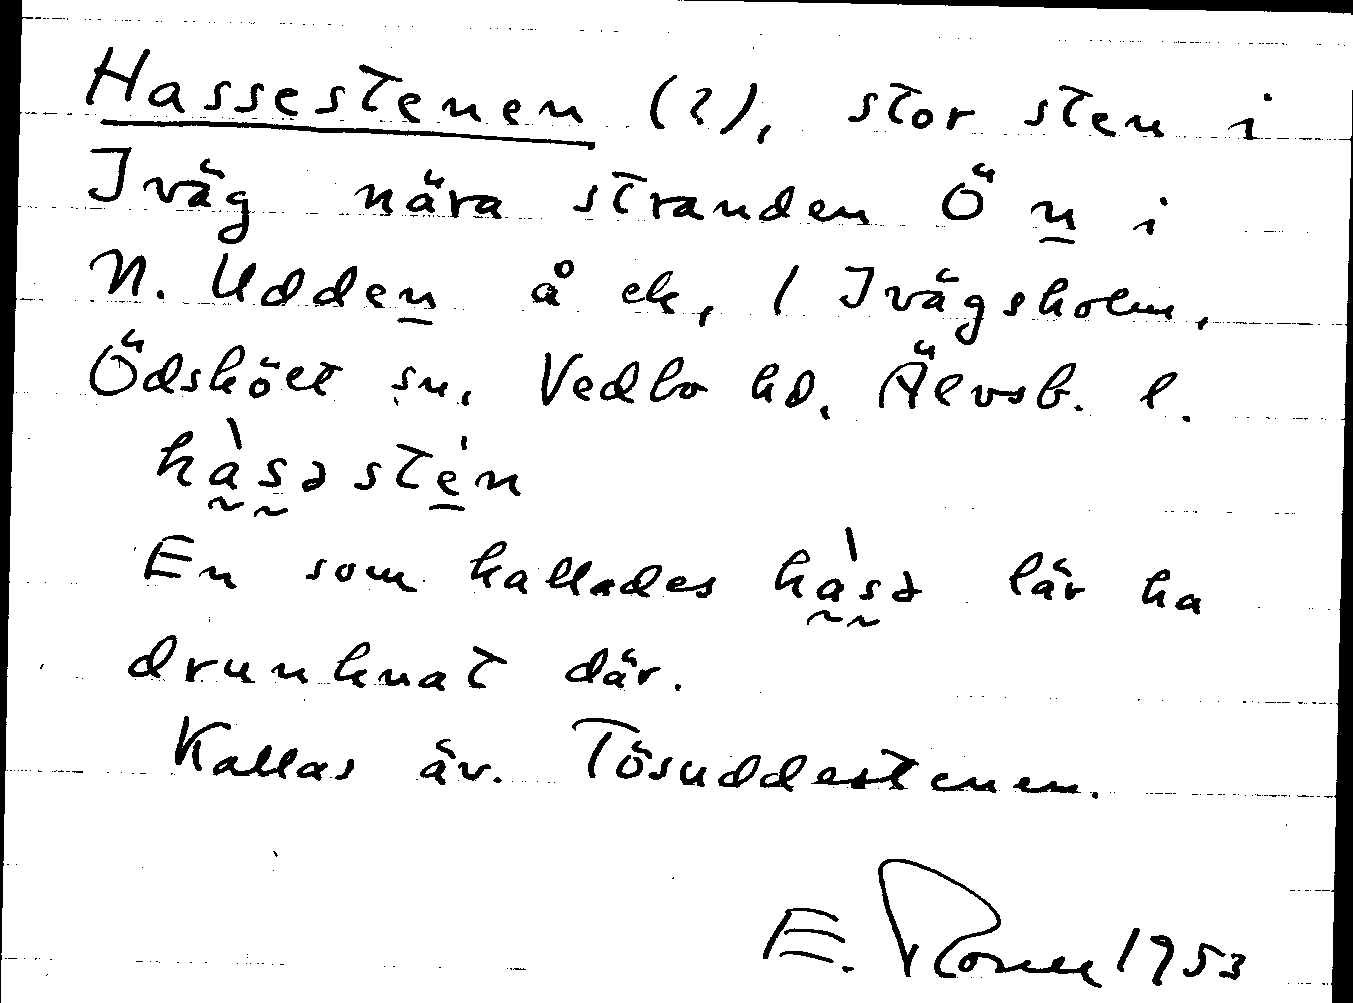 Hassestenen (?), stor sten i
Iväg nära stranden Ö n i
N. Udden å ek, 1 Ivägsholm,
Ödsköлt sn, Vedbo hd, Älvsb. l.
hàsəstén
En som kallades hàsə lär ha
drunknat där.
Kallas äv. Tösuddestenen.
E. 1953